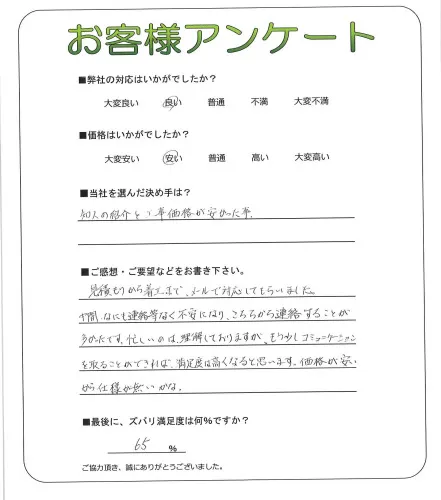 お客様アンケート
■弊社の対応はいかがでしたか？
大変良い 良い 普通 不満 大変不満
■価格はいかがでしたか？
大変安い 安い 普通 高い 大変高い
■当社を選んだ決め手は？
知人の紹介と、価格が安かった事。
■ご感想・ご要望などをお書き下さい。
見積もりから着工まで、メールで対応してもらいました。
間、なにも連絡等なく不安になり、こちらから連絡することが
多かったです。忙しいのは、理解しておりますが、もう少しコミュニケーション
を取ることができれば、満足度は高くなると思います。価格が安い
から仕様が無いかな。
■最後に、ズバリ満足度は何％ですか？
65 ％
ご協力頂き、誠にありがとうございました。